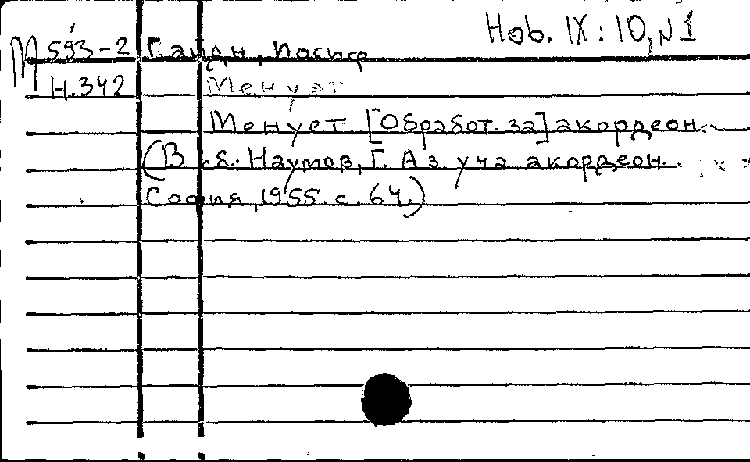 Ноb. IX: 10, №1
М 593-2 Гайдн, Йосиф
Н.342 Менует
Менует [Обработ. за] акордеон.
(В сб. Наумов, Г. Аз уча акордеон.
София, 1955. с. 64.)